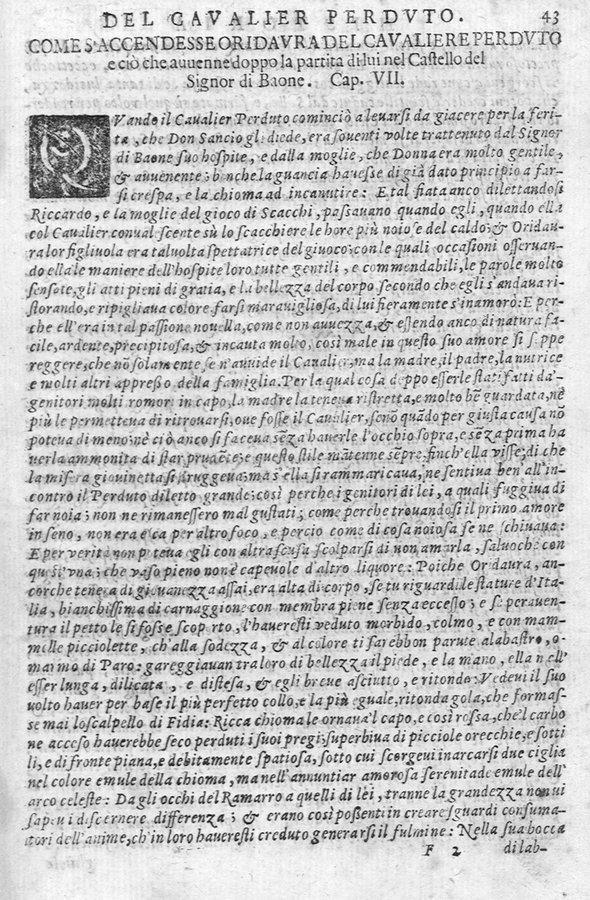 DEL CAVALIER PERDVTO. 43
COME S'ACCENDESSE ORIDAVRA DEL CAVALIERE PERDVTO
e ciò che auuenne doppo la partita di lui nel Castello del
Signor di Baone. Cap. VII.
QVando il Caualier Perduto cominciò a leuarsi da giacere per la feri-
ta, che Don Sancio gli diede, era souenti volte trattenuto dal Signor
di Baone suo hospite, e dalla moglie, che Donna era molto gentile,
& auuenente; benche la guancia hauesse di già dato principio a far-
si crespa, e la chioma ad incanutire: E tal fiata anco dilettandosi
Riccardo, e la moglie del gioco di Scacchi, passauano quando egli, quando ella
col Caualier conualescente sù lo scacchiere le hore più noiose del caldo; & Oridau-
ra lor figliuola era taluolta spettatrice del giuoco; con le quali occasioni osseruan-
do ella le maniere dell'hospite loro tutte gentili, e commendabili, le parole molto
sensate, gli atti pieni di gratia, e la bellezza del corpo secondo che egli s'andaua ri-
storando, e ripigliaua colore farsi marauigliosa, di lui fieramente s'inamorò: E per-
che ell'era in tal passione nouella, come non auuezza, & essendo anco di natura fa-
cile, ardente, precipitosa, & incauta molto, così male in questo suo amore si seppe
reggere, che nõ solamente se n'auuide il Caualier, ma la madre, il padre, la nutrice
e molti altri appresso della famiglia. Per la qual cosa doppo esserle stati fatti da'
genitori molti romori in capo, la madre la teneua ristretta, e molto bẽ guardata, nè
più le permetteua di ritrouarsi, oue fosse il Caualier, senõ quãdo per giusta causa nõ
poteua di meno: nè ciò anco si faceua sẽza hauerle l'occhio sopra, e sẽza prima ha
uerla ammonita di star e questo stile mãtenne sẽpre, finch'ella visse; di che
la misera giouinetta si struggeua; ma s'ella si rammaricaua, ne sentiua ben all'in-
contro il Perduto diletto grande; così perche i genitori di lei, a quali fuggiua di
far noia; non ne rimanessero mal gustati; come perche trouandosi il primo amore
in seno, non era esca per altro foco, e percio come di cosa noiosa se ne schiuaua:
E per verità non poteua egli con altra scusa scolparsi di non amarla, saluoche con
quest'vna; che vaso pieno non è capeuole d'altro liquore: Poiche Oridaura, an-
corche tenera di giouanezza assai, era alta di corpo, se tu riguardi le stature d'Ita-
lia, bianchissima di carnaggione con membra piene senza eccesso; e se perauen-
tura il petto le si fosse scoperto, l'haueresti veduto morbido, colmo, e con mam-
melle picciolette, ch'alla sodezza, & al colore ti farebbon parute alabastro, o
marmo di Paro: gareggiauan tra loro di bellezza il piede, e la mano, ella nell'
esser lunga, dilicata, e distesa, & egli breue asciutto, e ritondo: Vedeui il suo
volto hauer per base il più perfetto collo, e la più eguale, ritonda gola, che formas-
se mai lo scalpello di Fidia: Ricca chioma le ornaua'l capo, e così rossa, che'l carbo
ne acceso hauerebbe seco perduti i suoi pregi; superbiua di picciole orecchie, e sotti
li, e di fronte piana, e debitamente spatiosa, sotto cui scorgeui inarcarsi due ciglia
nel colore emule della chioma, ma nell'annuntiar amorosa serenitade emule dell'
arco celeste: Da gli occhi del Ramarro a quelli di lei, tranne la grandezza non ui
sapeui discernere differenza; & erano così possenti in creare sguardi consuma-
tori dell'anime, ch'in loro haueresti creduto generarsi il fulmine: Nella sua bocca
F 2 di lab-